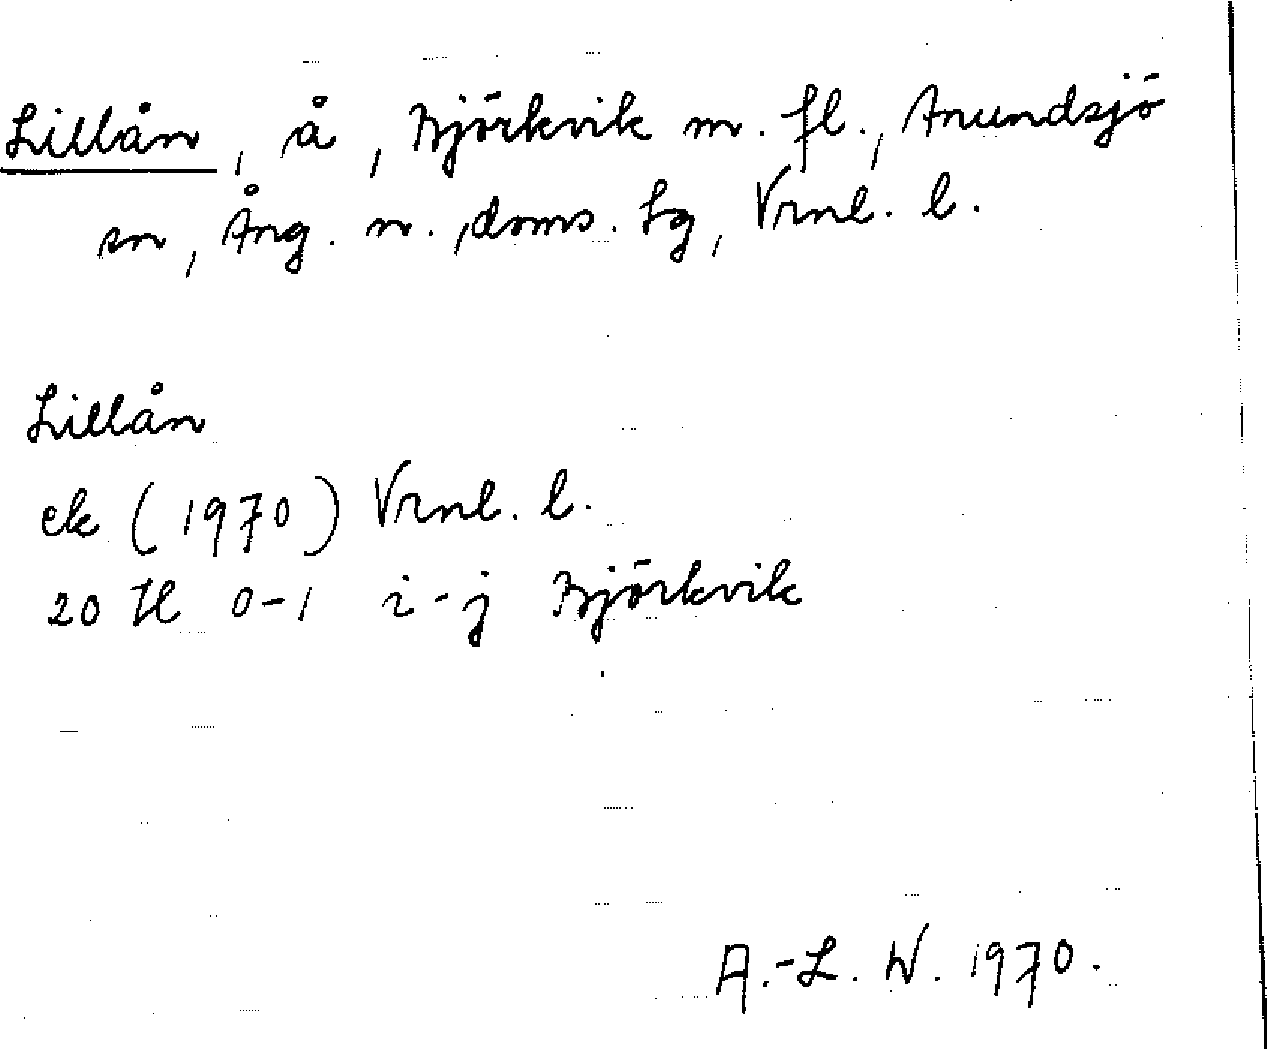 Lillån, å, Björkvik m. fl., Anundsjö
sn, Ång. n. doms. lg, Vrnl. l.
Lillån
ek (1970) Vrnl. l.
20 H 0-1 i-j Björkvik
A.-L. W. 1970.